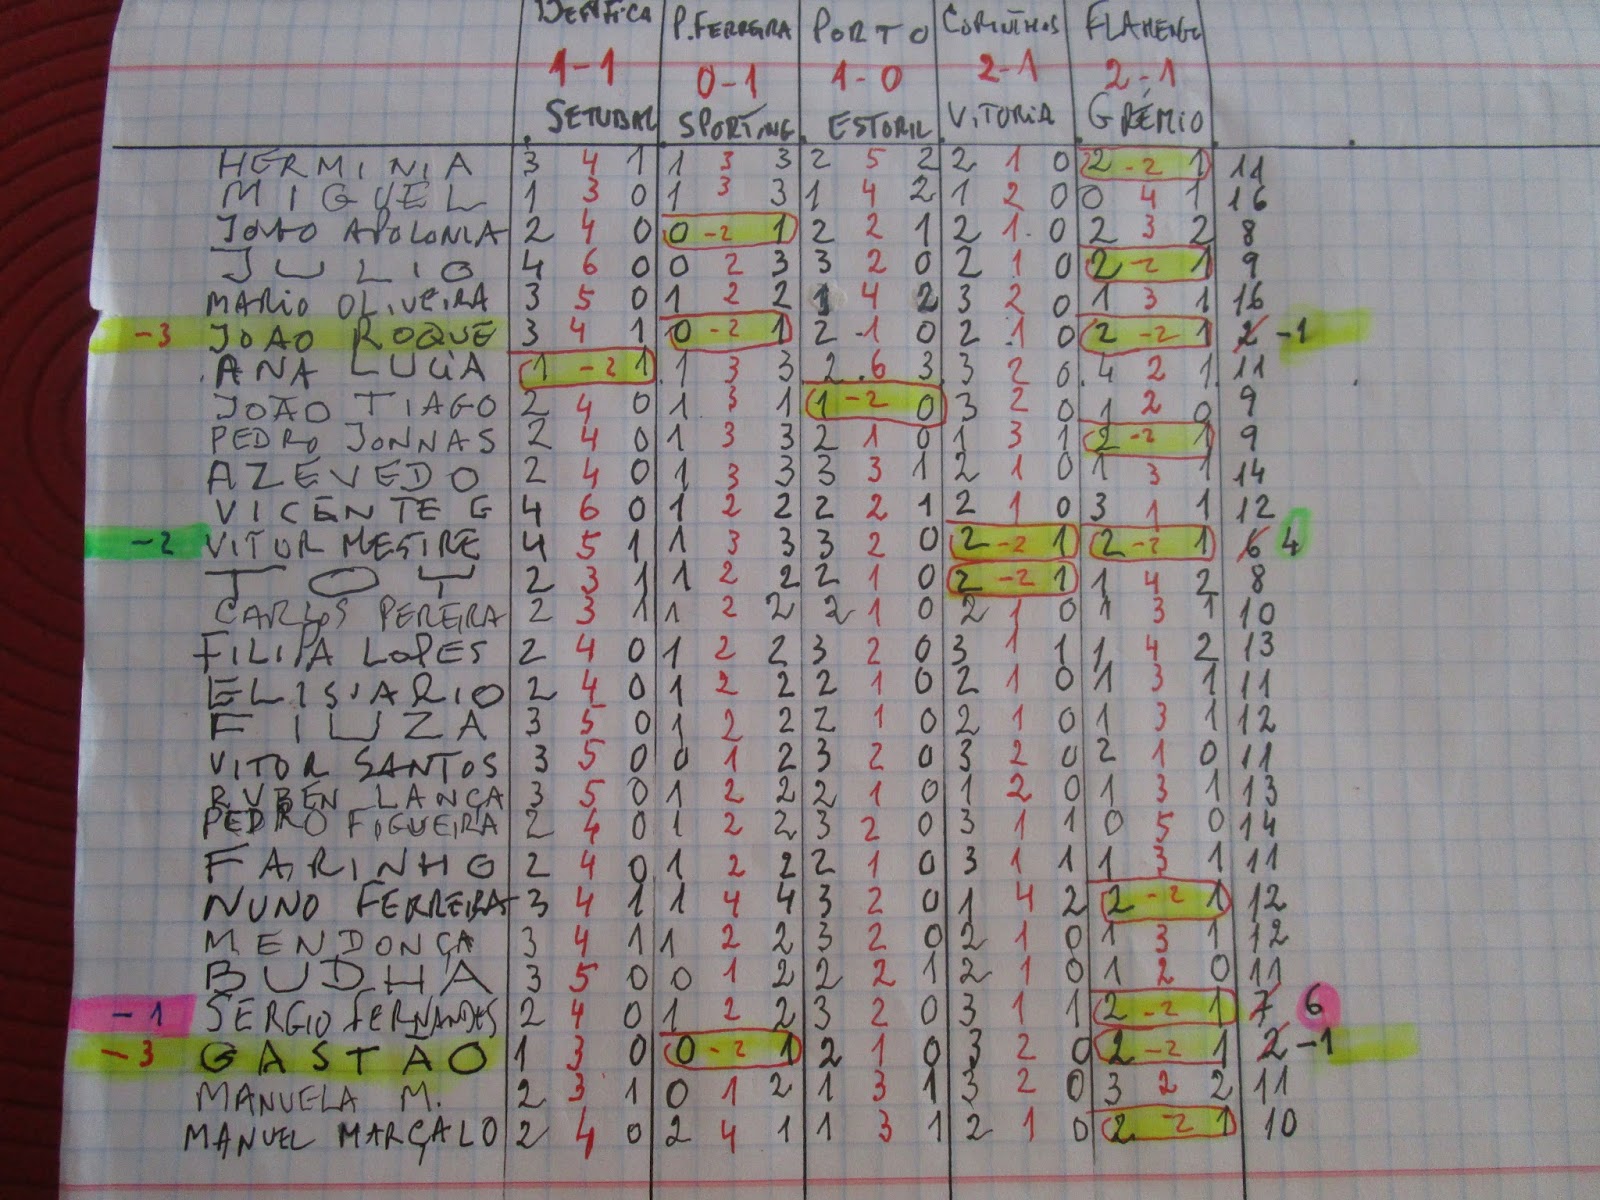 BENFICA P. FERREIRA PORTO CORINTHOS FLAMENGO
1-1 0-1 1-0 2-1 2-1
SETUBAL SPORTING ESTORIL VITORIA GRÉMIO
HERMINIA 3 4 1 1 3 3 2 5 2 2 1 0 2 -2 1 11
MIGUEL 1 3 0 1 3 3 1 4 2 1 2 0 0 4 1 16
JOÃO APOLONIA 2 4 0 0 -2 1 2 2 1 2 1 0 2 3 2 8
JULIO 4 6 0 0 2 3 3 2 0 2 1 0 2 -2 1 9
MARIO OLIVEIRA 3 5 0 1 2 2 1 4 2 3 2 0 1 3 1 16
-3 JOAO ROQUE 3 4 1 0 -2 1 2 -1 0 2 1 0 2 -2 1 2 -1
ANA LUCIA 1 -2 1 1 3 3 2 6 3 3 2 0 4 2 1 11
JOÃO TIAGO 2 4 0 1 3 1 1 -2 0 3 2 0 1 2 0 9
PEDRO JONNAS 2 4 0 1 3 3 2 1 0 1 3 1 2 -2 1 9
AZEVEDO 2 4 0 1 3 3 3 3 1 2 1 0 1 3 1 14
VICENTE G 4 6 0 1 2 2 2 2 1 2 1 0 3 1 1 12
-2 VITOR MESTRE 4 5 1 1 3 3 3 2 0 2 -2 1 2 -2 1 6 4
TOY 2 3 1 1 2 2 2 1 0 2 -2 1 1 4 2 8
CARLOS PEREIRA 2 3 1 1 2 2 2 1 0 2 1 0 1 3 1 10
FILIPA LOPES 2 4 0 1 2 2 3 2 0 3 1 1 1 4 2 13
ELISIARIO 2 4 0 1 2 2 2 1 0 2 1 0 1 3 1 11
FIUZA 3 5 0 1 2 2 2 1 0 2 1 0 1 3 1 12
VITOR SANTOS 3 5 0 0 1 2 3 2 0 3 2 0 2 1 0 11
RUBEN LANÇA 3 5 0 1 2 2 2 1 0 1 2 0 1 3 1 13
PEDRO FIGUEIRA 2 4 0 1 2 2 3 2 0 3 1 1 0 5 0 14
FARINHO 2 4 0 1 2 2 2 1 0 3 1 1 1 3 1 11
NUNO FERREIRA 3 4 1 1 4 4 3 2 0 1 4 2 2 -2 1 12
MENDONÇA 3 4 1 1 2 2 3 2 0 2 1 0 1 3 1 12
BUDHA 3 5 0 0 1 2 2 2 1 2 1 0 1 2 0 11
-1 SERGIO FERNANDES 2 4 0 1 2 2 3 2 0 3 1 1 2 -2 1 7 6
-3 GASTÃO 1 3 0 0 -2 1 2 1 0 3 2 0 2 -2 1 2 -1
MANUELA M. 2 3 1 0 1 2 1 3 1 3 2 0 3 2 2 11
MANUEL MARÇALO 2 4 0 2 4 1 1 3 1 2 1 0 2 -2 1 10